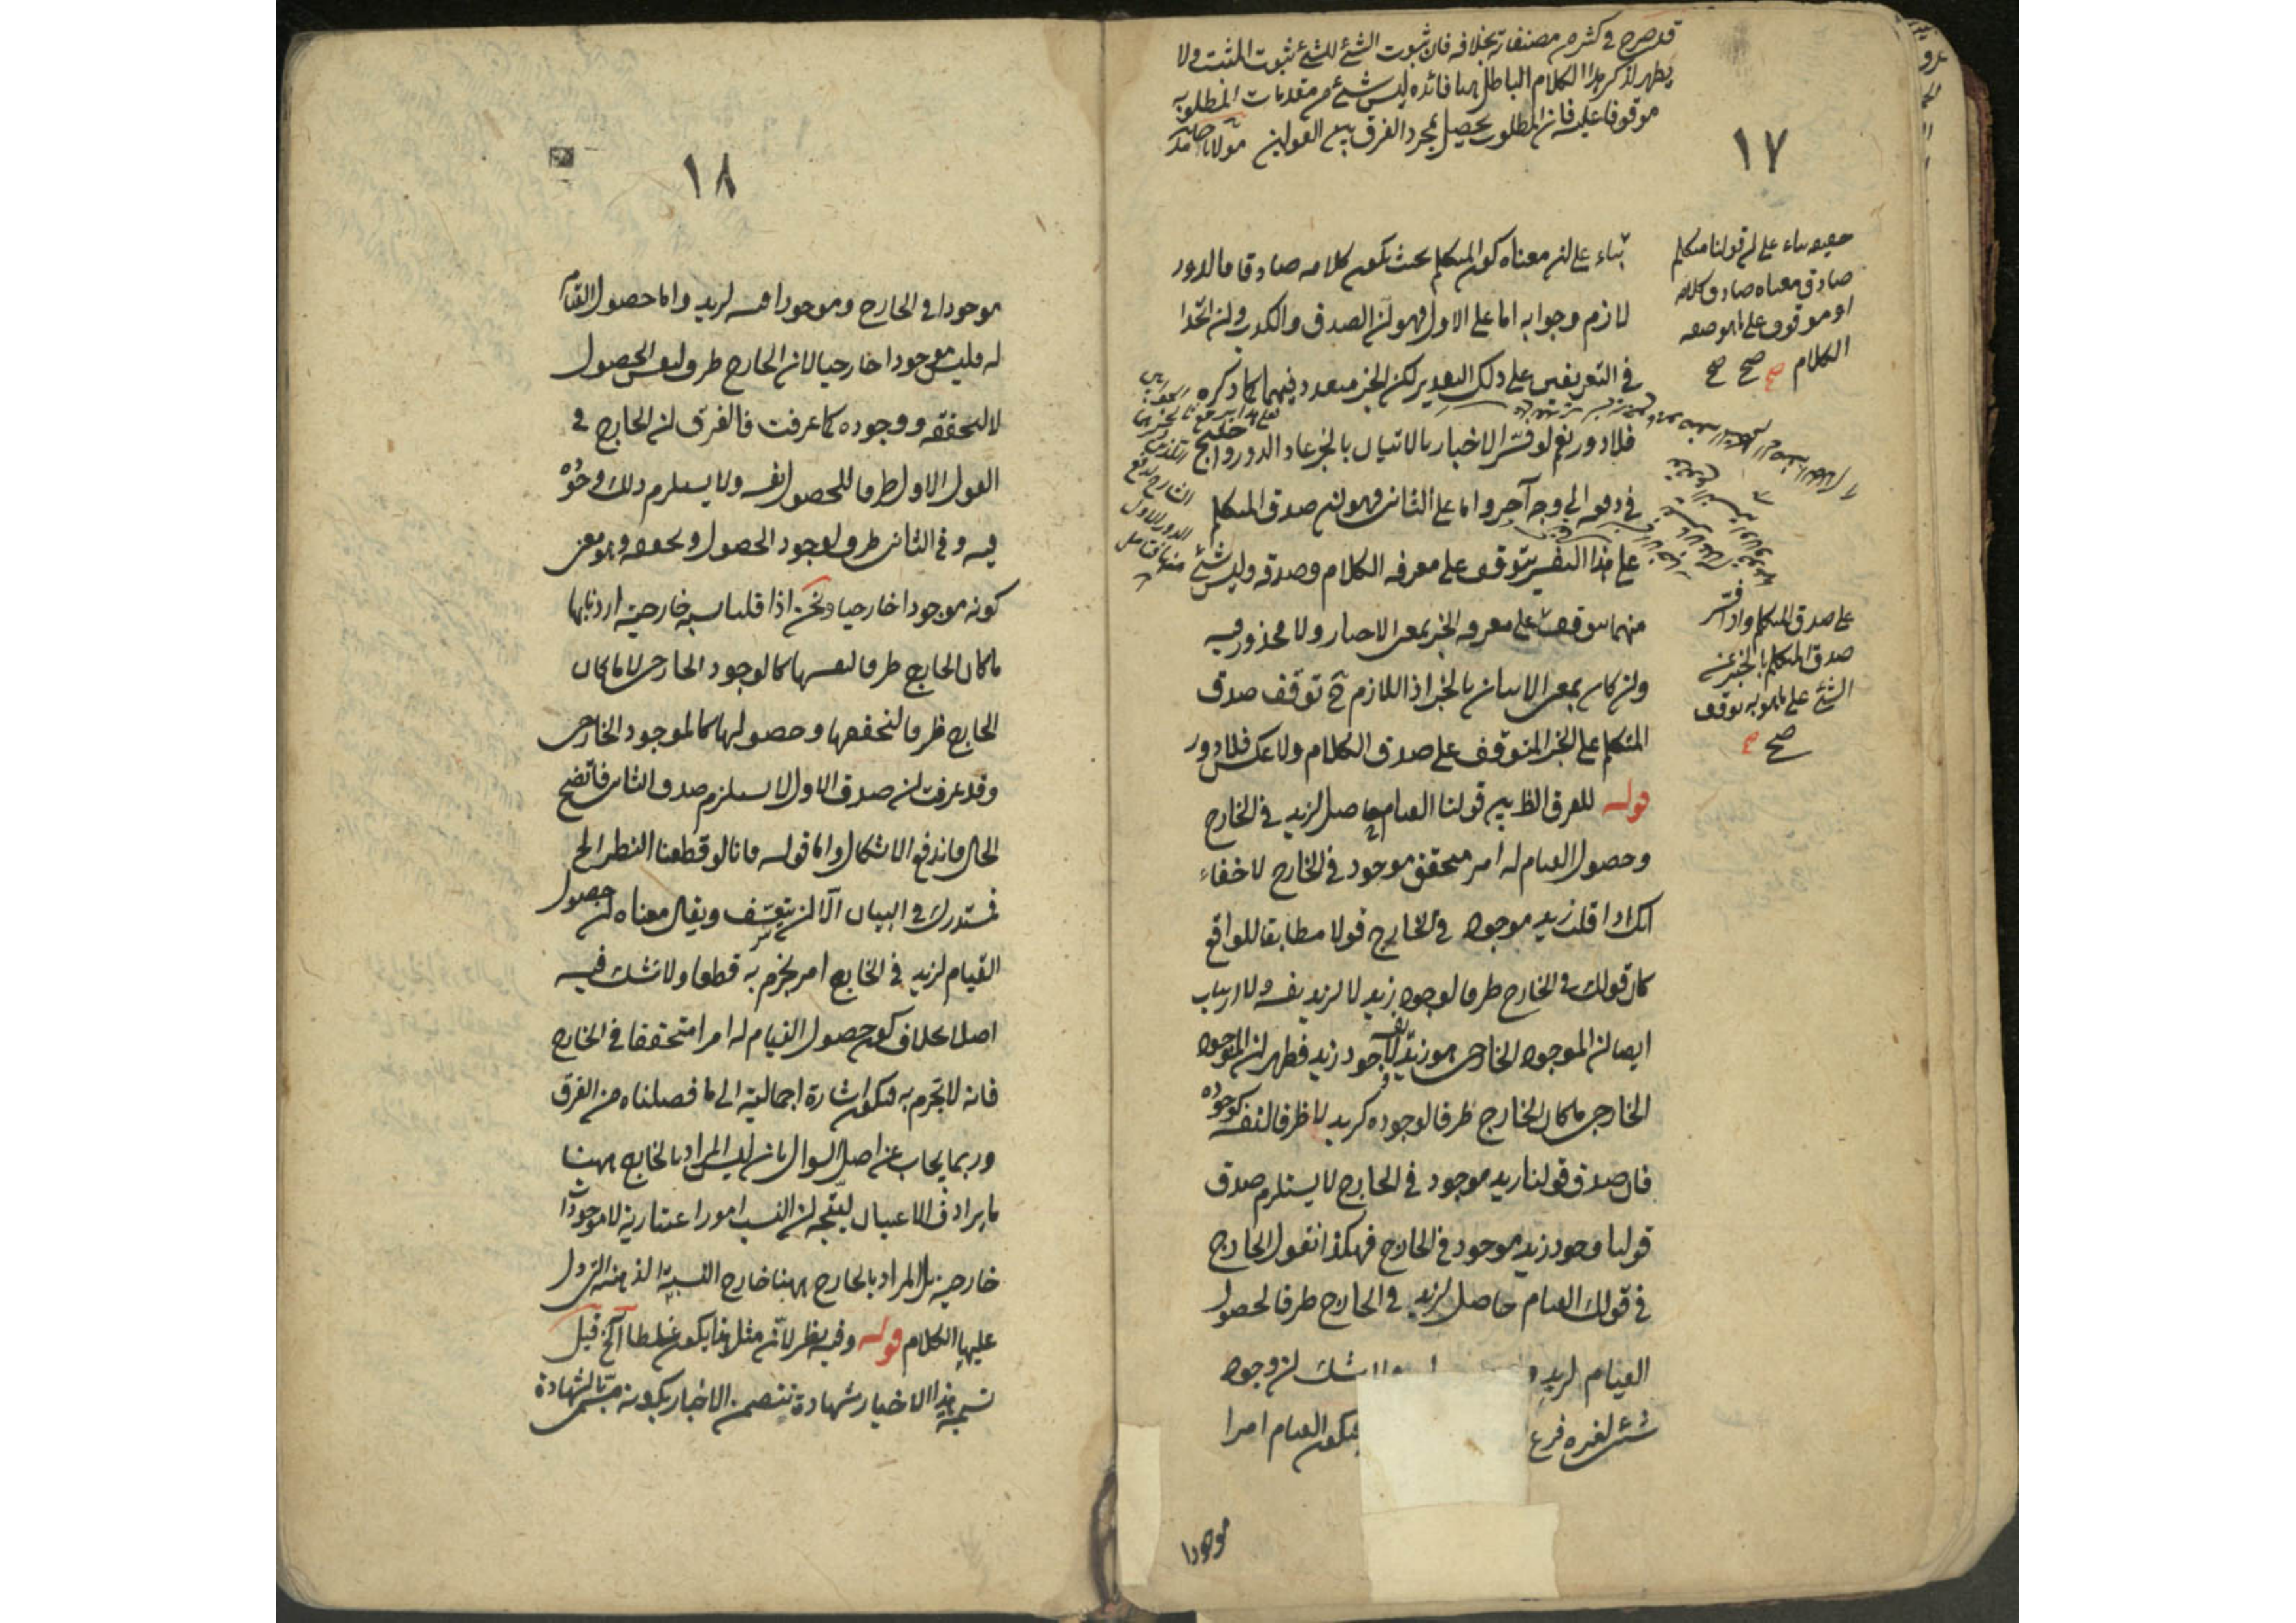 قد صرح في كثير من مصنفاته بخلافه فان ثبوت الشئ للشئ ثبوت المثبت ولا
يظهر لذكر هذا الكلام الباطل هنا فائدة ليس شئ من مقدمات المطلوب
موقوفا عليه فان المطلوب يحصل بمجرد الفرق بين القولين مولانا
١٧
بناء على ان معناه كون المتكلم بحيث يكون كلامه صادقا فالدور
لازم وجوابه اما على الاول فهو ان الصدق والكذب وان اتحدا
في التعريفين على ذلك التقدير لكن الخبر متعدد فيهما كما ذكره
فلا دور نعم لو فسر الاخبار بالاتيان بالخبر عاد الدور واحتيج
في دفعه الى وجه آخر واما على الثاني فهو ان صدق المتكلم
على هذا التفسير يتوقف على معرفة الكلام وصدقه وليس شئ
منهما يتوقف على معرفة الخبر بمعنى الاخبار ولا محذور فيه
وان كان بمعنى الاتيان بالخبر اذ اللازم ح توقف صدق
المتكلم على الخبر المتوقف على صدق الكلام ولا عكس فلا دور
قوله للفرق الظ بين قولنا القيام حاصل لزيد في الخارج
وحصول القيام له امر متحقق موجود في الخارج لا خفاء
انك اذا قلت زيد موجود في الخارج قولا مطابقا للواقع
كان قولك في الخارج ظرفا لوجود زيد لا لزيد نفسه ولا ارتياب
ايضا ان الموجود الخارجي هو زيد لا وجود زيد فظهر ان الموجود
الخارجي ما كان الخارج ظرفا لوجوده كزيد لا ظرفا لنفسه كوجوده
فان صدق قولنا زيد موجود في الخارج لا يستلزم صدق
قولنا وجود زيد موجود في الخارج فهكذا نقول الخارج
في قولك القيام حاصل لزيد في الخارج ظرفا لحصول
القيام لزيد شك ان وجود
شئ لغيره فرع فيكون القيام امرا
موجودا
حقيقة بناء على ان قولنا متكلم
صادق معناه صادق كلامه
او موقوف على ما هو صفة
الكلام صح صح صح
على صدق المتكلم واذا فسر
صدق المتكلم بالخبر عن
الشئ على ما هو به توقف
صح صح
١٨
موجودا في الخارج وموجودا فيه لزيد واما حصول القيام
له فليس موجودا خارجيا لان الخارج ظرف لنفس الحصول
لا لتحققه ووجوده كما عرفت فالفرق ان الخارج في
القول الاول ظرف للحصول نفسه ولا يستلزم ذلك وجوده
فيه وفي الثاني ظرف لوجود الحصول وتحققه وهو معنى
كونه موجودا خارجيا ونحن اذا قلنا نسبة خارجية اردنا بها
ما كان الخارج ظرفا لنفسها كالوجود الخارجي لا ما كان
الخارج ظرفا لتحققها وحصولها كالموجود الخارجي
وقد عرفت ان صدق الاول لا يستلزم صدق الثاني فاتضح
الحال واندفع الاشكال واما قوله فانا لو قطعنا النظر الخ
فمستدرك في البيان الا ان يتعسف ويقال معناه ان حصول
القيام لزيد في الخارج امر نجزم به قطعا ولا نشك فيه
اصلا بخلاف كون حصول القيام له امرا متحققا في الخارج
فانه لا نجزم به فيكون اشارة اجمالية الى ما فصلناه من الفرق
وربما يجاب عن اصل السوال بان ليس المراد بالخارج ههنا
ما يرادف الاعيان ليتجه ان النسب امور اعتبارية لا موجودات
خارجية بل المراد بالخارج ههنا خارج النسبة الذهنية التي دل
عليها الكلام قوله وفيه نظر لان مثل هذا يكون غلطا الخ قيل
تسمية هذا الاخبار شهادة يتضمن الاخبار بكونه مسمى بالشهادة